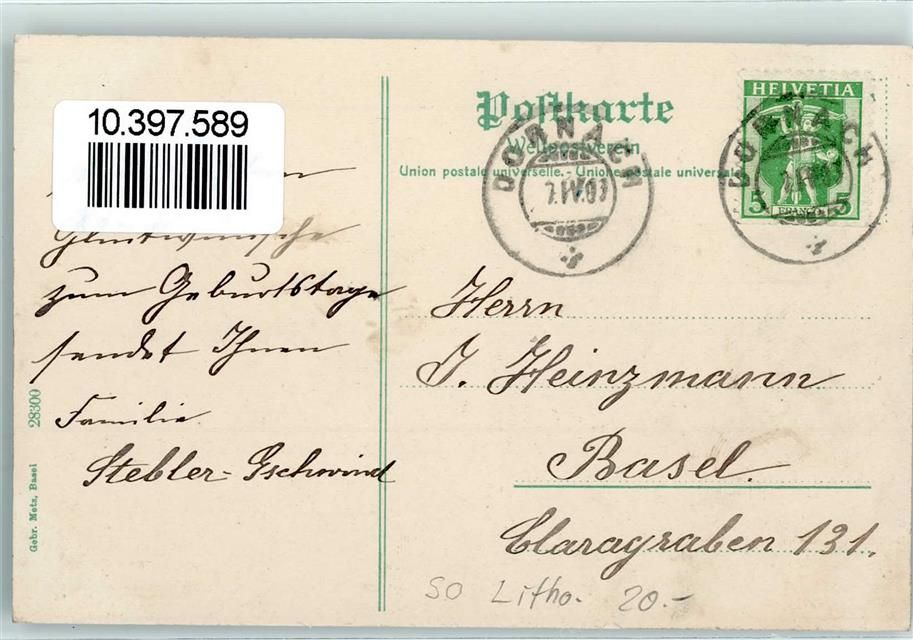 10.397.589
Glückwünsche
zum Geburtstage
sendet Ihnen
Familie
Stebler-Gschwind
28300
Gebr. Metz, Basel
Postkarte
Weltpostverein
Union postale universelle. - Unione postale universale
HELVETIA
5 FRANCO 5
DORNACH
DORNACH
Herrn
J. Heinzmann
Basel.
Claragraben 131.
SO Litho. 20.-